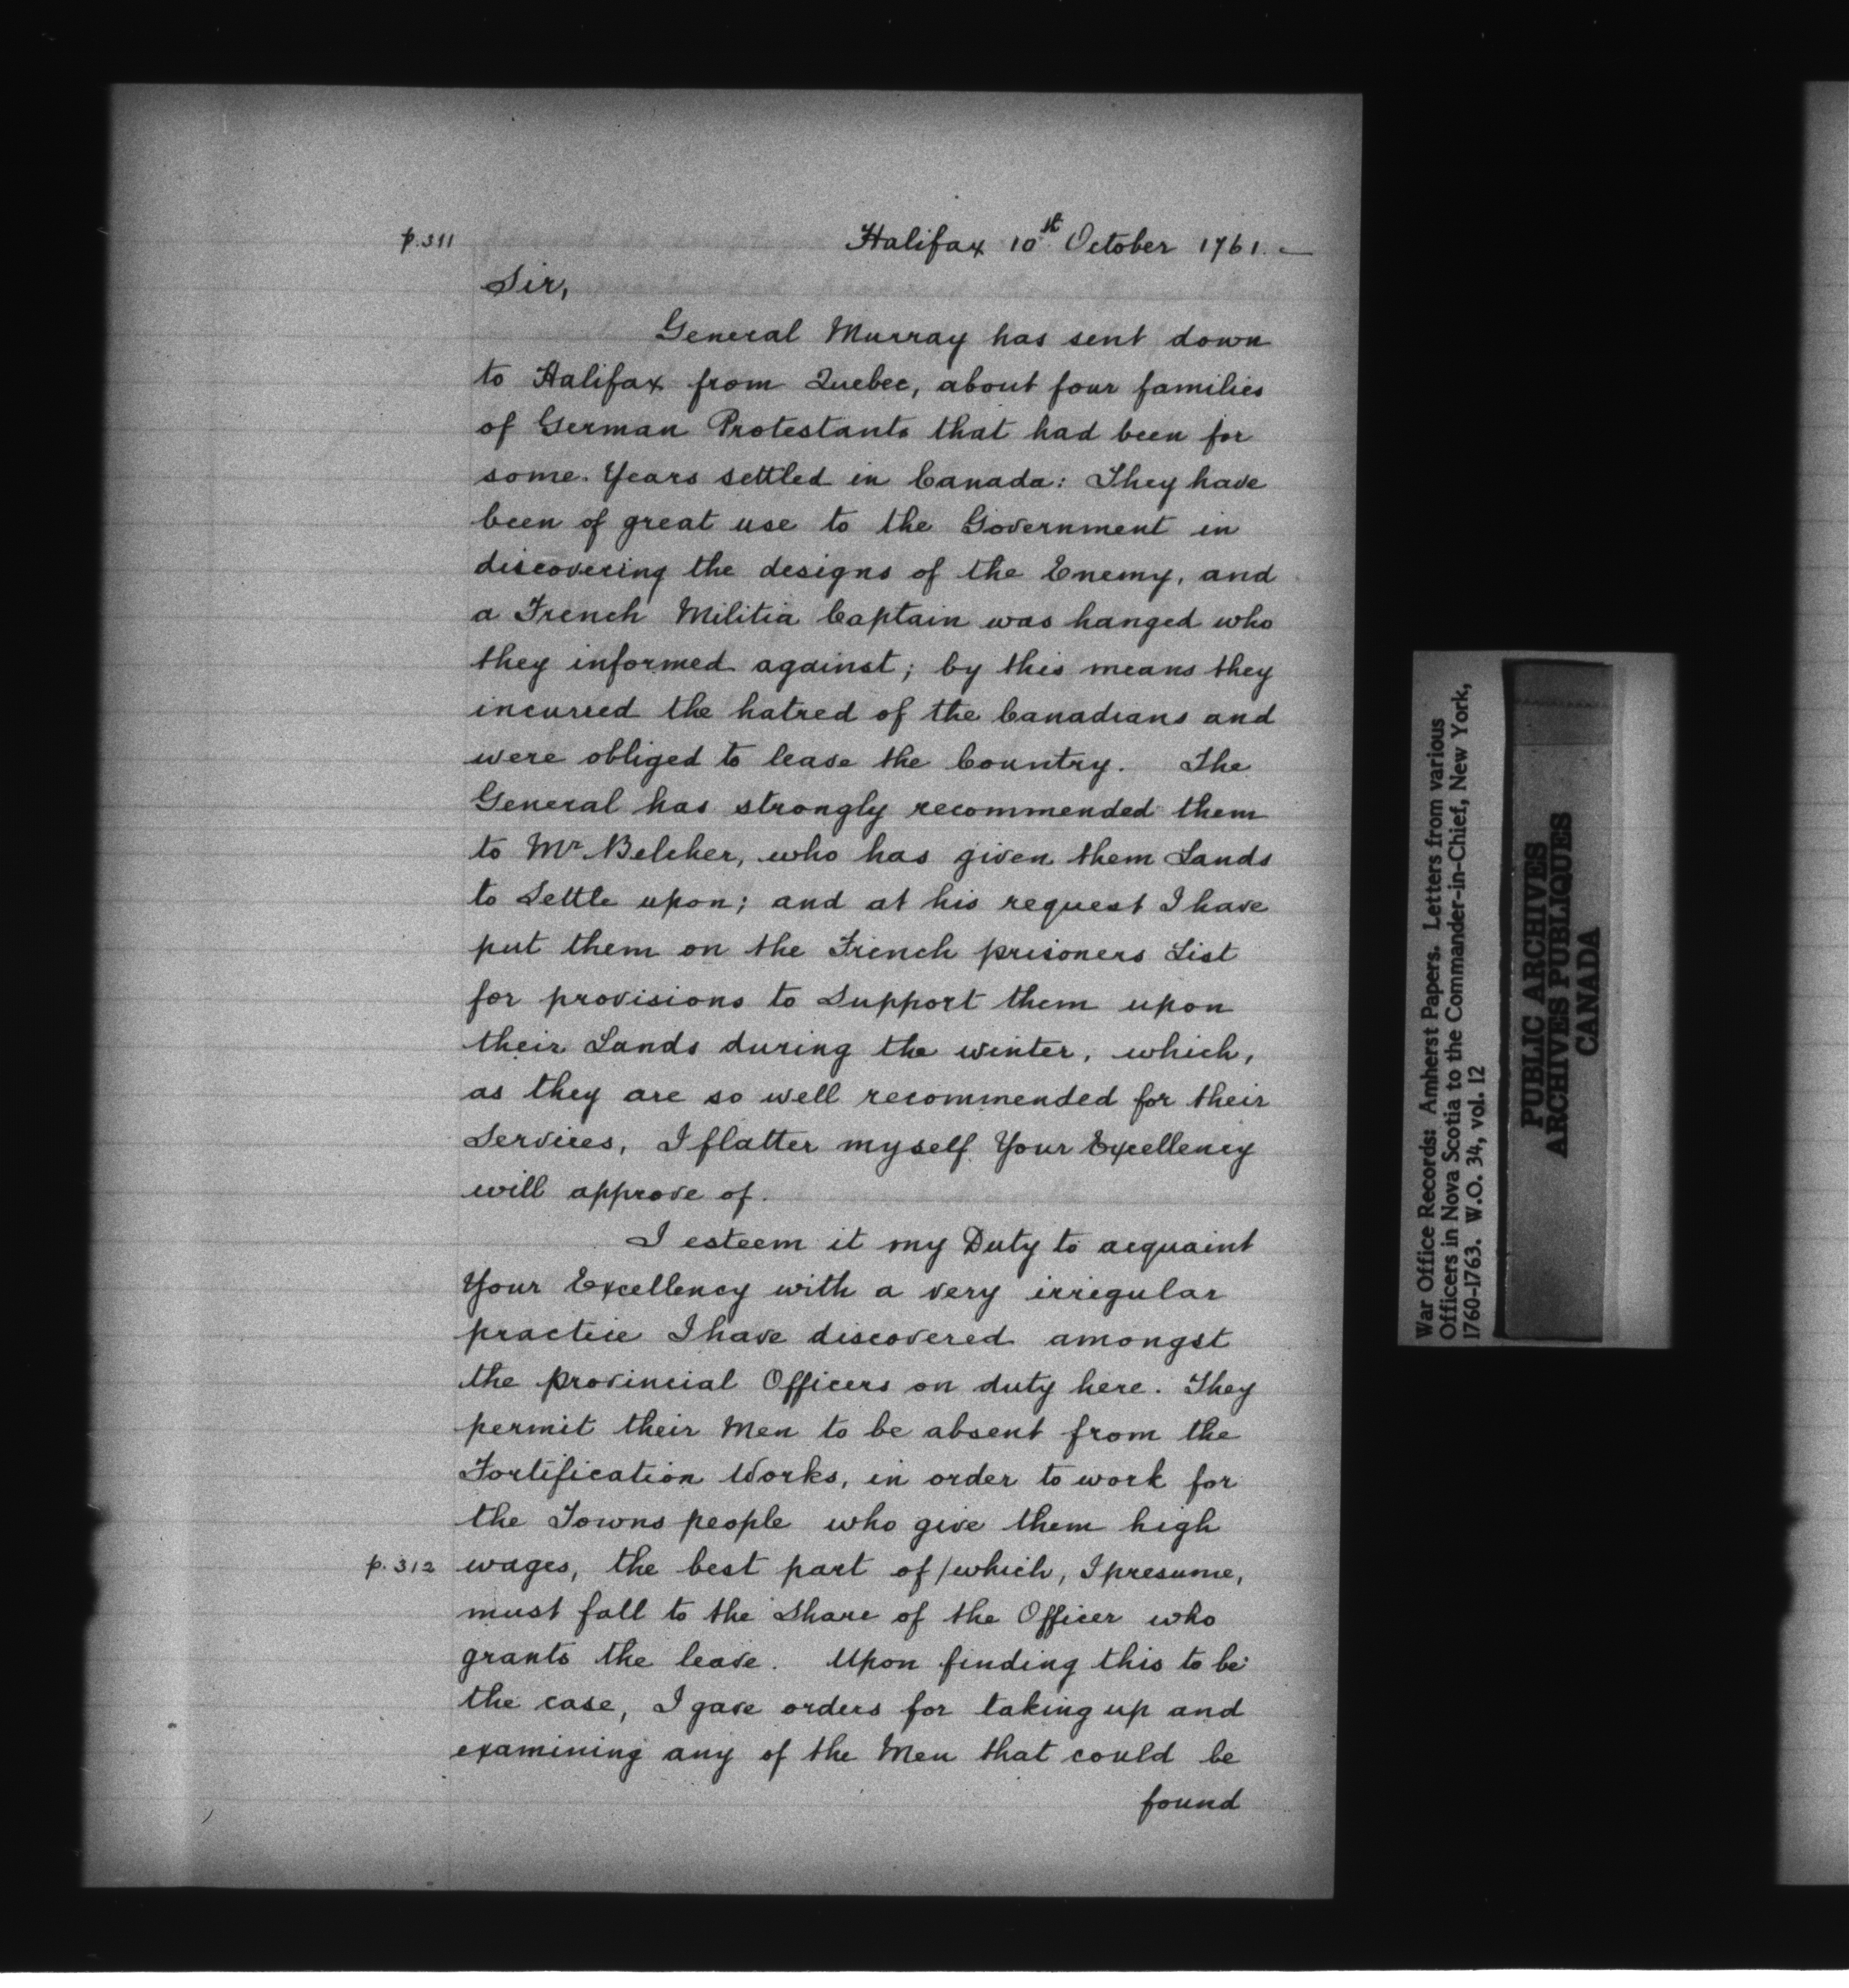 p.311
Halifax 10th October 1761.—
Sir,
General Murray has sent down
to Halifax from Quebec, about four families
of German Protestants that had been for
some Years settled in Canada: They have
been of great use to the Government in
discovering the designs of the Enemy, and
a French Militia Captain was hanged who
they informed against; by this means they
incurred the hatred of the Canadians and
were obliged to leave the Country. The
General has strongly recommended them
to Mr Belcher, who has given them Lands
to Settle upon; and at his request I have
put them on the French prisoners List
for provisions to Support them upon
their Lands during the winter, which,
as they are so well recommended for their
Services, I flatter myself Your Excellency
will approve of.
I esteem it my Duty to acquaint
Your Excellency with a very irregular
practice I have discovered amongst
the provincial Officers on duty here. They
permit their Men to be absent from the
Fortification Works, in order to work for
the Towns people who give them high
p.312 wages, the best part of/which, I presume,
must fall to the Share of the Officer who
grants the leave. Upon finding this to be
the case, I gave orders for taking up and
examining any of the Men that could be
found
War Office Records: Amherst Papers. Letters from various
Officers in Nova Scotia to the Commander-in-Chief, New York,
1760-1763. W.O. 34, vol. 12
PUBLIC ARCHIVES
ARCHIVES PUBLIQUES
CANADA